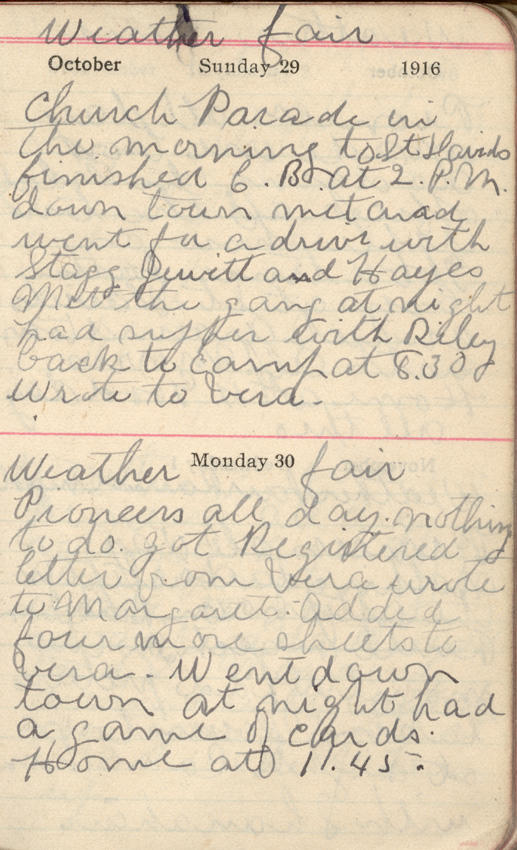 Weather fair
October Sunday 29 1916
Church Parade in
the morning to St Davids
finished C. B. at 2. P.M.
down town met Chad
went for a drive with
Stagg Jewitt and Hayes
Met the gang at night
had supper with Riley
back to camp at 8.30
wrote to Vera.
Monday 30
Weather fair
Pioneers all day. nothing
to do. got Registered
letter from Vera wrote
to Margaret. added
four more sheets to
Vera. Went down
town at night had
a game of cards.
Home at 11.45.